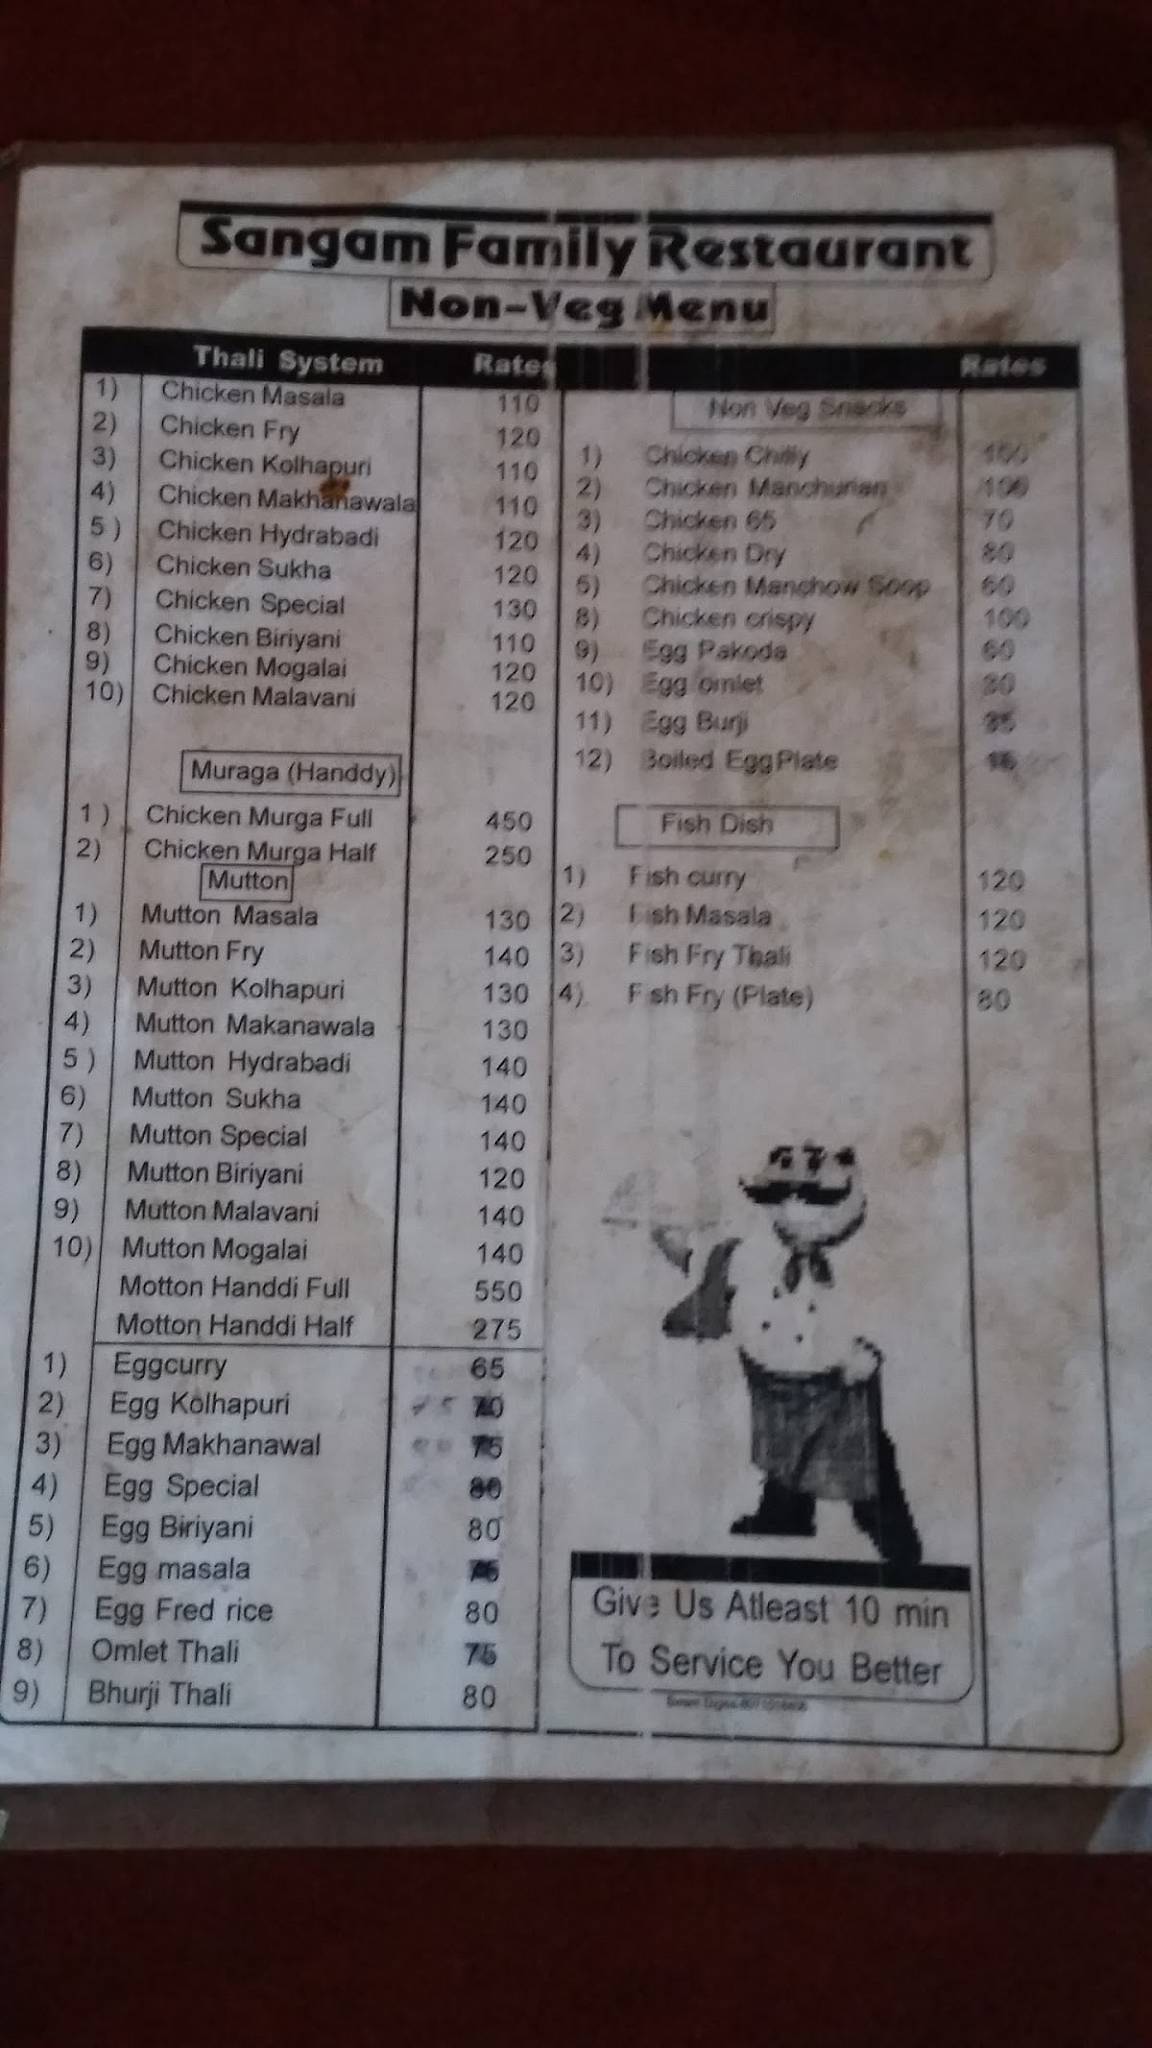 Sangam Family Restaurant
Non-Veg Menu
Thali System Rates
1) Chicken Masala 110
2) Chicken Fry 120
3) Chicken Kolhapuri 110
4) Chicken Makhanawala 110
5 ) Chicken Hydrabadi 120
6) Chicken Sukha 120
7) Chicken Special 130
8) Chicken Biriyani 110
9) Chicken Mogalai 120
10) Chicken Malavani 120
Muraga (Handdy)
1 ) Chicken Murga Full 450
2) Chicken Murga Half 250
Mutton
1) Mutton Masala 130
2) Mutton Fry 140
3) Mutton Kolhapuri 130
4) Mutton Makanawala 130
5 ) Mutton Hydrabadi 140
6) Mutton Sukha 140
7) Mutton Special 140
8) Mutton Biriyani 120
9) Mutton Malavani 140
10) Mutton Mogalai 140
Motton Handdi Full 550
Motton Handdi Half 275
1) Eggcurry 65
2) Egg Kolhapuri
3) Egg Makhanawal 75
4) Egg Special 80
5) Egg Biriyani 80
6) Egg masala
7) Egg Fred rice 80
8) Omlet Thali 75
9) Bhurji Thali 80
Rates
Non Veg Snacks
1) Chicken Chilly 100
2) Chicken Manchurian 100
3) Chicken 65 70
4) Chicken Dry 80
5) Chicken Manchow Soop 60
8) Chicken crispy 100
9) Egg Pakoda 60
10) Egg omlet
11) Egg Burji
12) Boiled Egg Plate
Fish Dish
1) Fish curry 120
2) Fish Masala 120
3) Fish Fry Thali 120
4) Fish Fry (Plate) 80
Give Us Atleast 10 min
To Service You Better